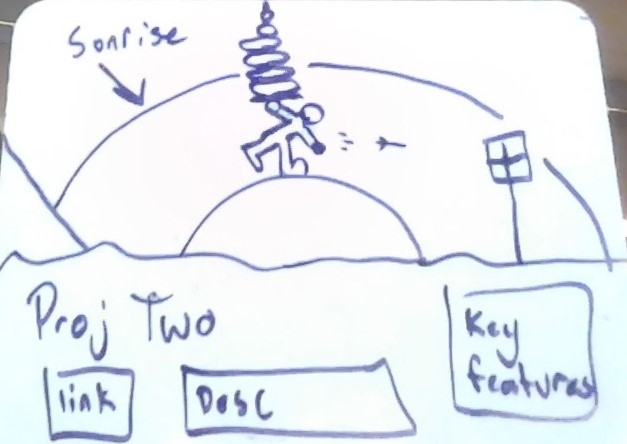 Sonrise
Proj Two
link
Desc
Key
features